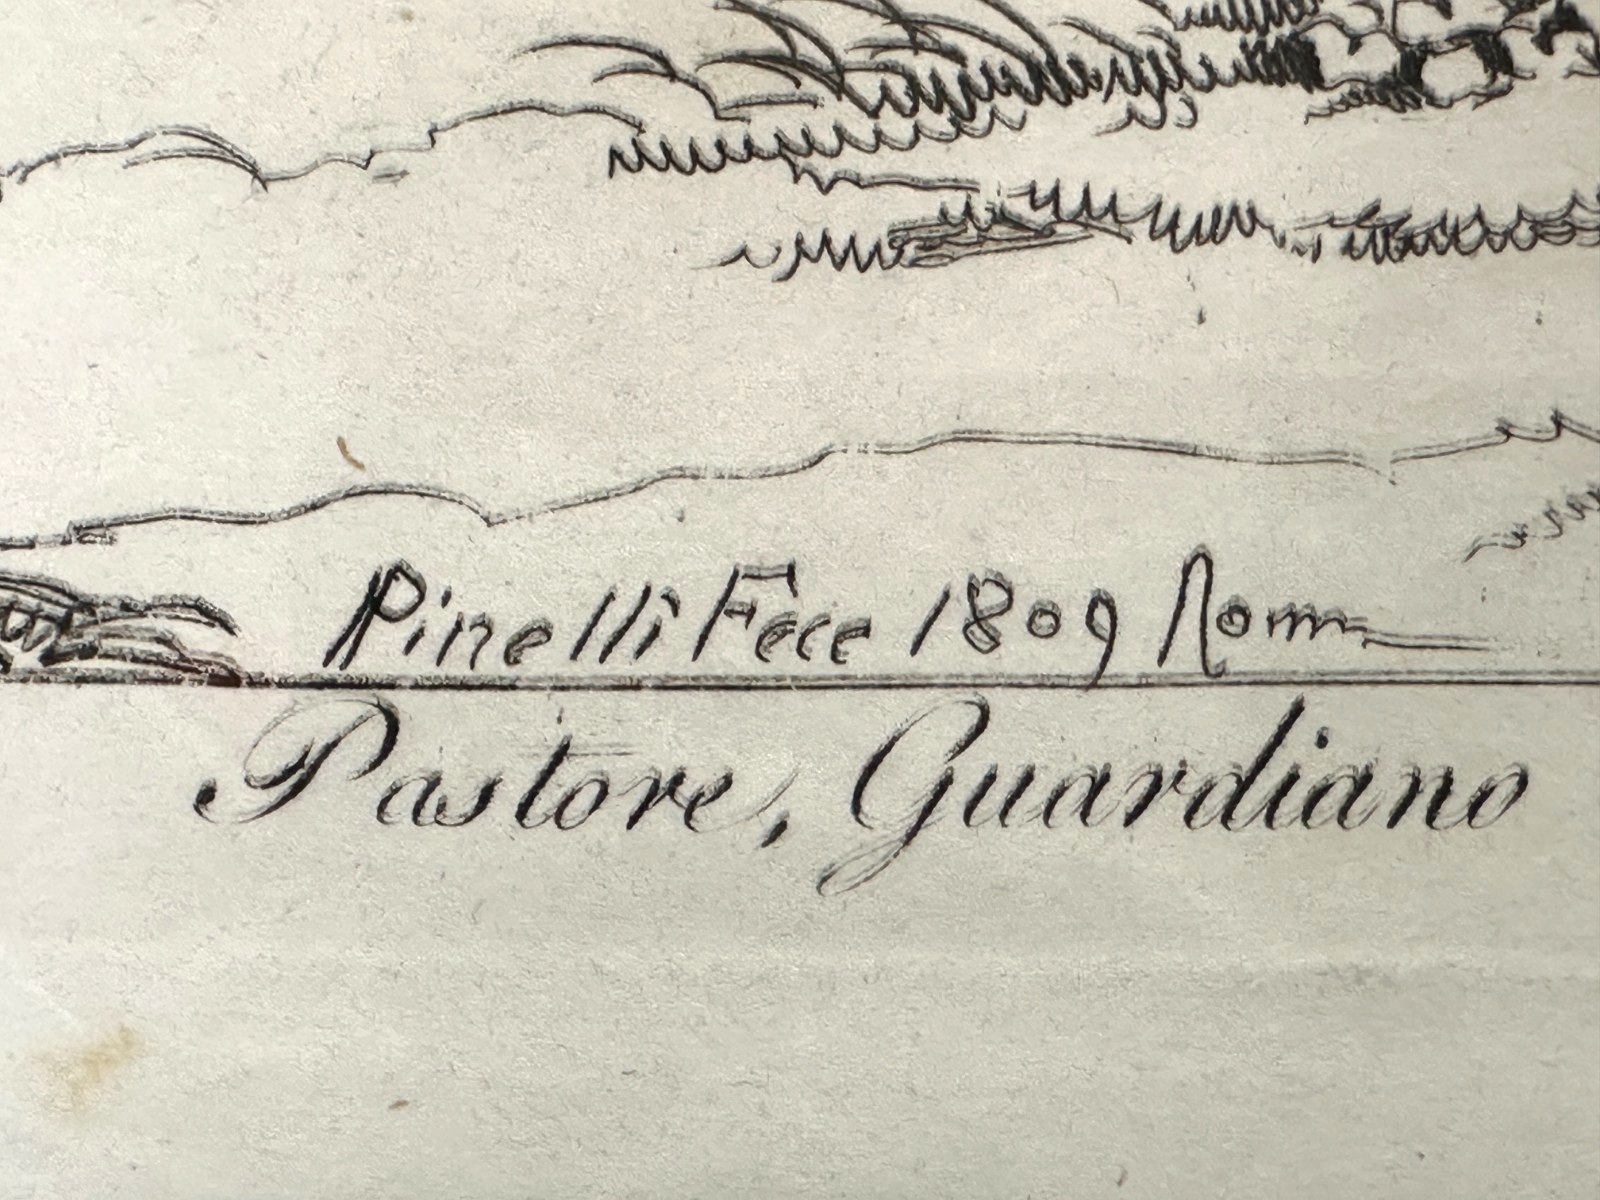 Pinelli Fece 1809 Roma
Pastore, Guardiano